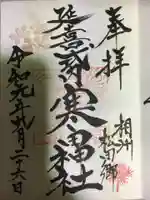 奉拝
相州
松田郷
延喜式
寒田神社
令和元年九月二十六日